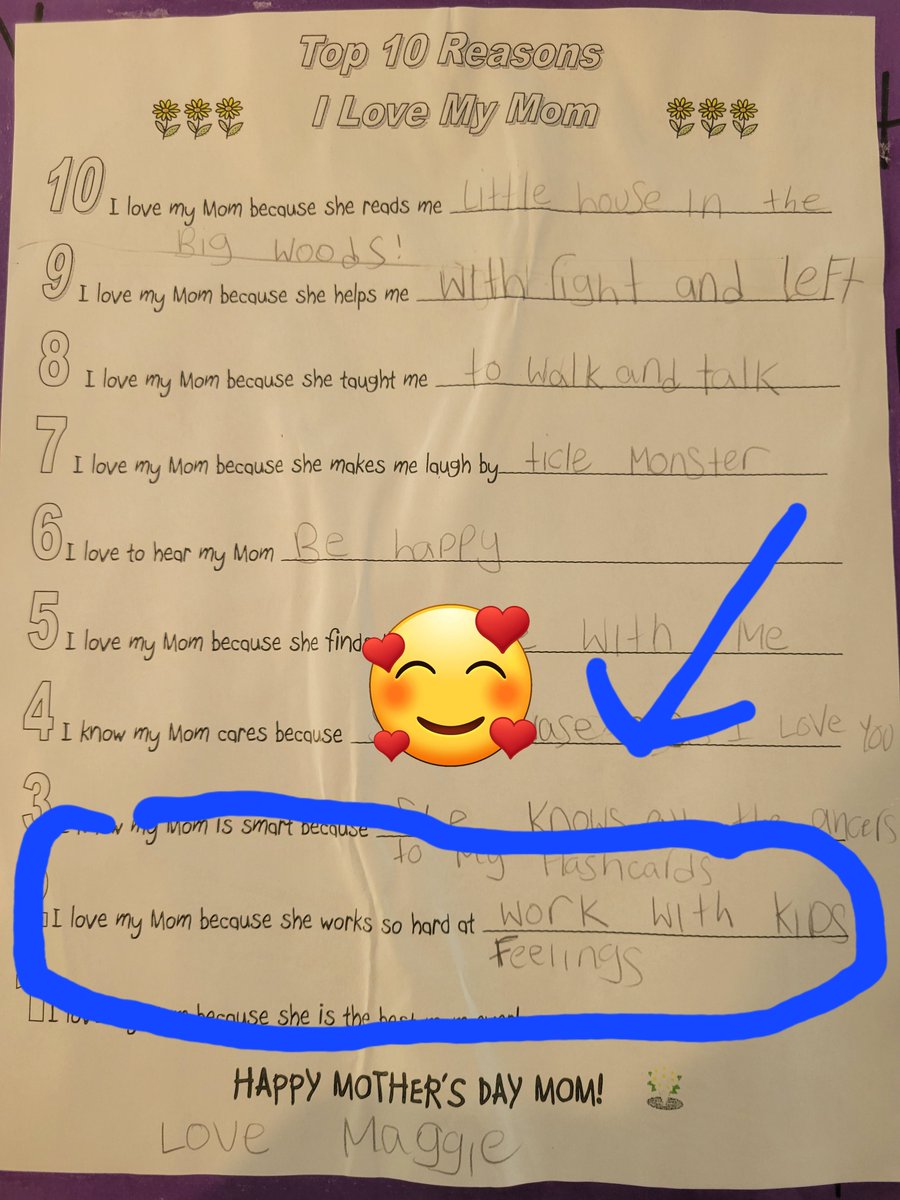 Top 10 Reasons
I Love My Mom
10 I love my Mom because she reads me Little house In the
Big woods!
9 I love my Mom because she helps me with right and left
8 I love my Mom because she taught me to walk and talk
7 I love my Mom because she makes me laugh by ticle Monster
6 I love to hear my Mom Be happy
5 I love my Mom because she finds with Me
4 I know my Mom cares because I Love You
3 I know my Mom is smart because She knows all the ancers
to My flashcards
I love my Mom because she works so hard at work with kids
Feelings
because she is the best
HAPPY MOTHER'S DAY MOM!
Love Maggie